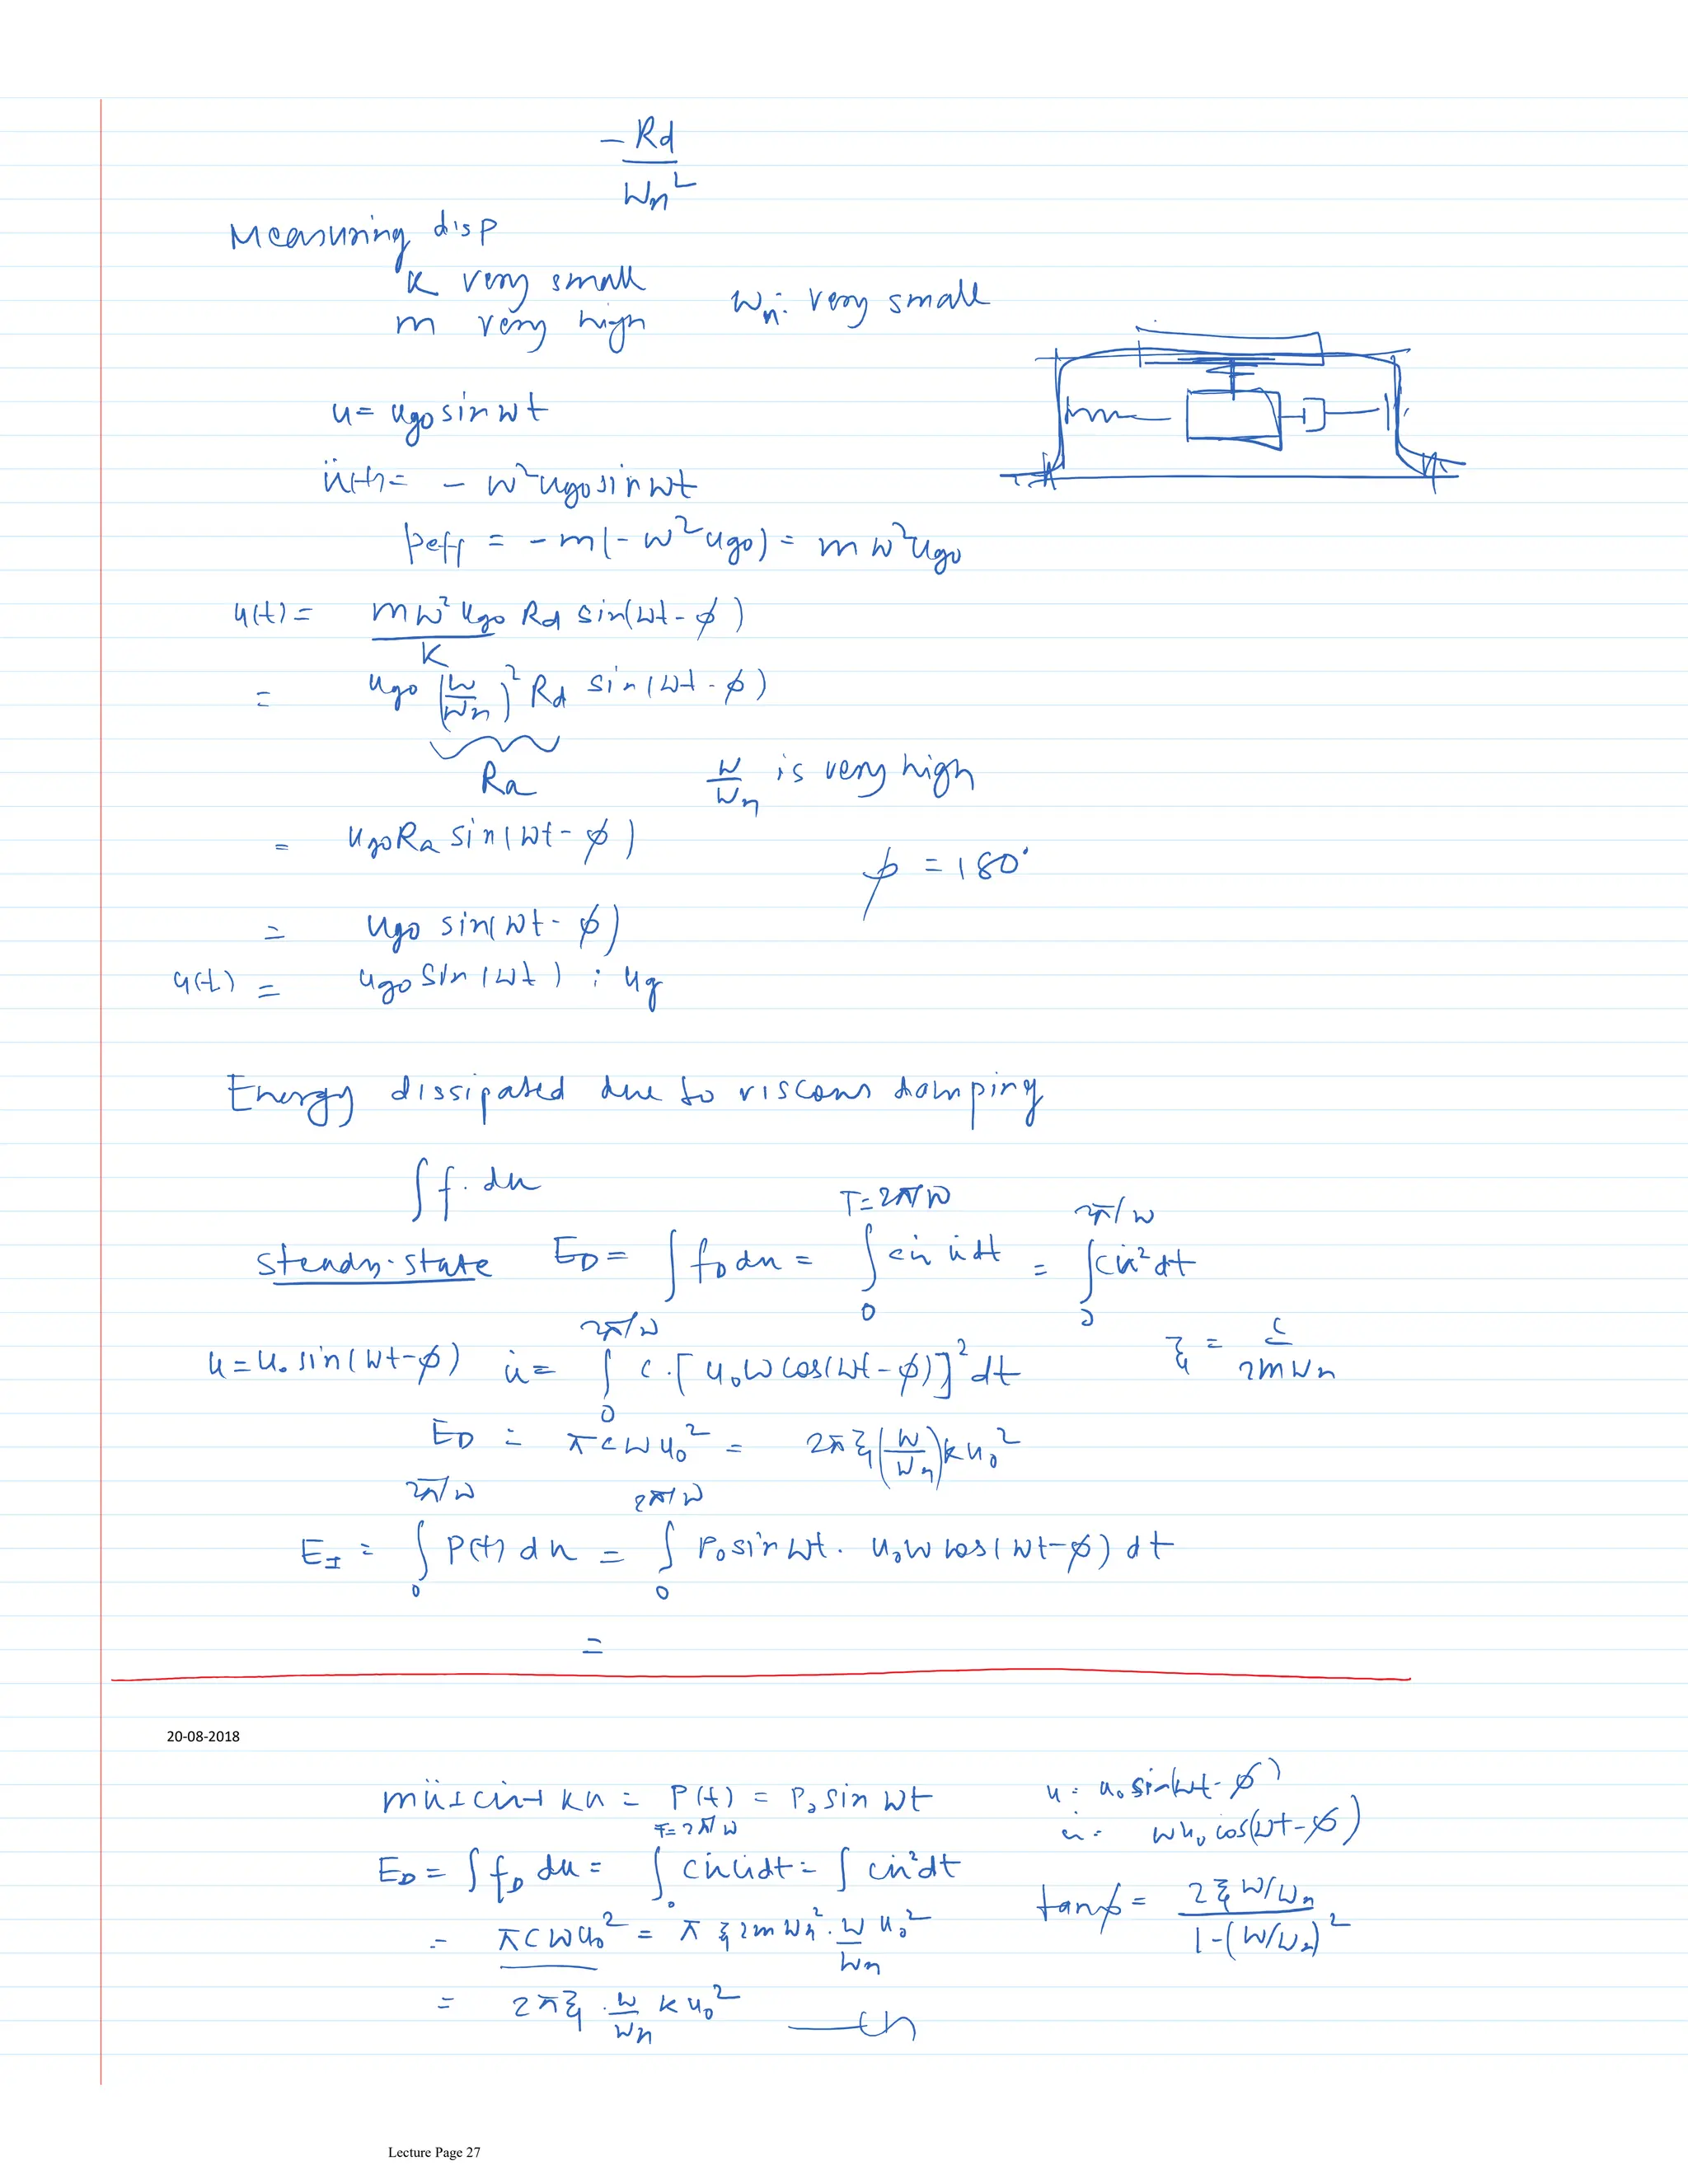 -Rd / ωn²
Measuring disp
k very small
m very high
ωn: very small
u = ugo sin ωt
ü(t) = - ω² ugo sin ωt
peff = -m(-ω² ugo) = m ω² ugo
u(t) = mω² ugo / k Rd sin(ωt - ϕ)
= ugo (ω/ωn)² Rd sin(ωt - ϕ)
Ra
ω/ωn is very high
= ugo Ra sin(ωt - ϕ)
ϕ = 180°
= ugo sin(ωt - ϕ)
u(t) = ugo sin(ωt) : ug
Energy dissipated due to viscous damping
∫ f. du
steady-state ED = ∫ fD du = ∫₀^{T=2π/ω} c u̇ u̇ dt = ∫₀^{2π/ω} c u̇² dt
u = u₀ sin(ωt-ϕ) u̇ = ∫₀^{2π/ω} c.[u₀ω cos(ωt-ϕ)]² dt
ξ = c / 2mωn
ED = πcωu₀² = 2πξ(ω/ωn)ku₀²
EI = ∫₀^{2π/ω} P(t) du = ∫₀^{2π/ω} P₀ sin ωt. u₀ω cos(ωt-ϕ) dt
=
20-08-2018
mü + cu̇ + ku = P(t) = P₀ sin ωt
u = u₀ sin(ωt-ϕ)
u̇ = ωu₀ cos(ωt-ϕ)
ED = ∫ fD du = ∫₀^{T=2π/ω} c u̇ u̇ dt = ∫ c u̇² dt
tanϕ = 2ξ ω/ωn / 1-(ω/ωn)²
= πcωu₀² = π ξ 2m ωn². ω/ωn u₀²
= 2πξ . ω/ωn k u₀² —(1)
Lecture Page 27